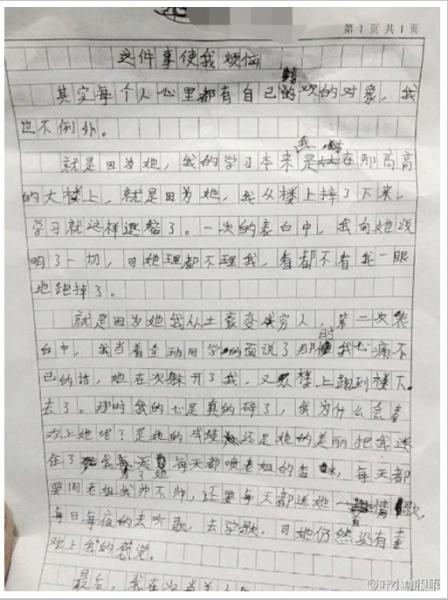 第1页共1页
这件事使我烦恼
其实每个人心里都有自己喜欢的对象,我
也不例外。
就是因为她,我的学习本来是在那高高
的大楼上,就是因为她,我从楼上掉了下来,
学习就这样退后了。一次的表白中,我向她说
明了一切,可她理都不理我,看都不看我一眼
地跑掉了。
就是因为她我从土豪变成穷人,第二次表
白中,我当着全班同学的面说了那时我心痛不
已的话,她在次躲开了我,又从楼上跑到楼下
去了。那时我的心是真的碎了,我为什么会喜
欢上她呢?是她的成绩还是她的美丽把我迷
住了 每天都喷老姐的香 ,每天都
要问老姐我帅不帅,还要每天都送她 情歌,
每日每夜的去听歌,去学歌,可她仍然没有喜
欢上我的感觉。
最后,我在次当